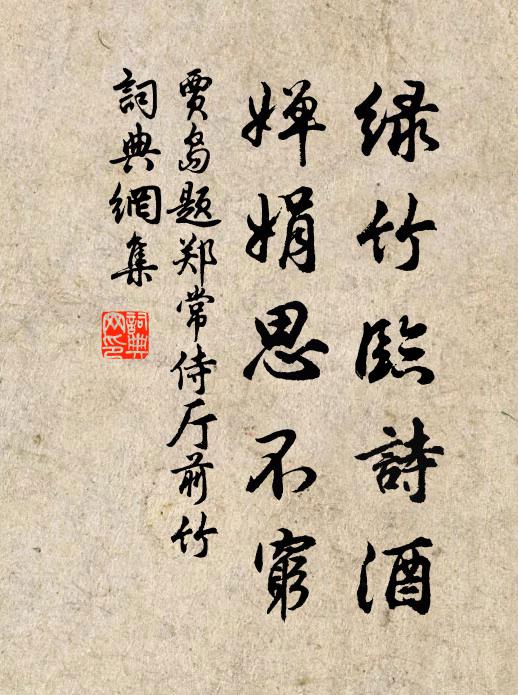 绿竹临詩酒
婵娟思不窮
贾岛题郑常侍厅前竹
詞典網集
詞典网印